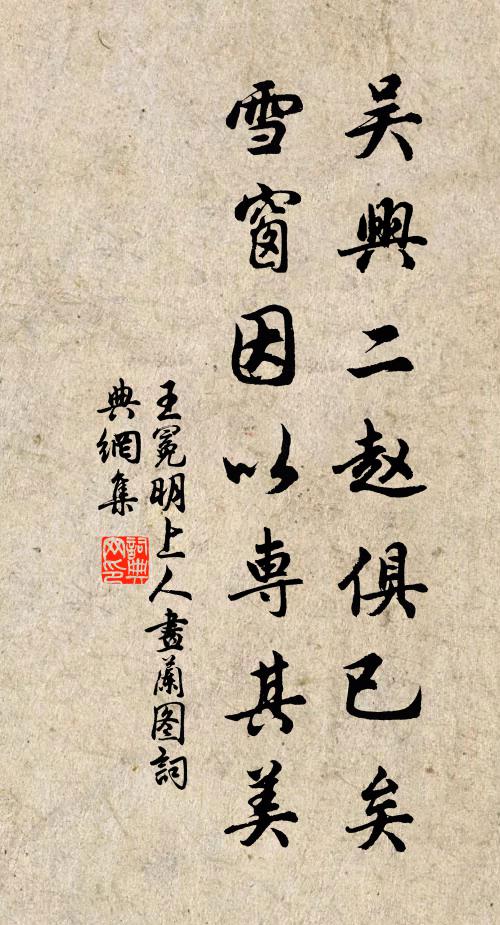 吴興二赵俱已矣
雪窗因以専其美
王冕明上人畫蘭图詞
典網集
詞典网印